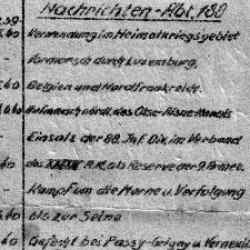 Nachrichten-Abt. 188
39- Verwendung im Heimatkriegsgebiet
- Vormarsch durch Luxemburg,
.40 Belgien und Nordfrankreich.
.40 nördl. des Oise-Aisne-Kanals
- Einsatz der 88. Inf. Div. im Verband
.40 des A.K. als Reserve der 9. Armee.
- Kampf um die Marne u. Verfolgung
.40 bis zur Seine
.40 Gefecht bei Passy-Grigny u. Verneuil